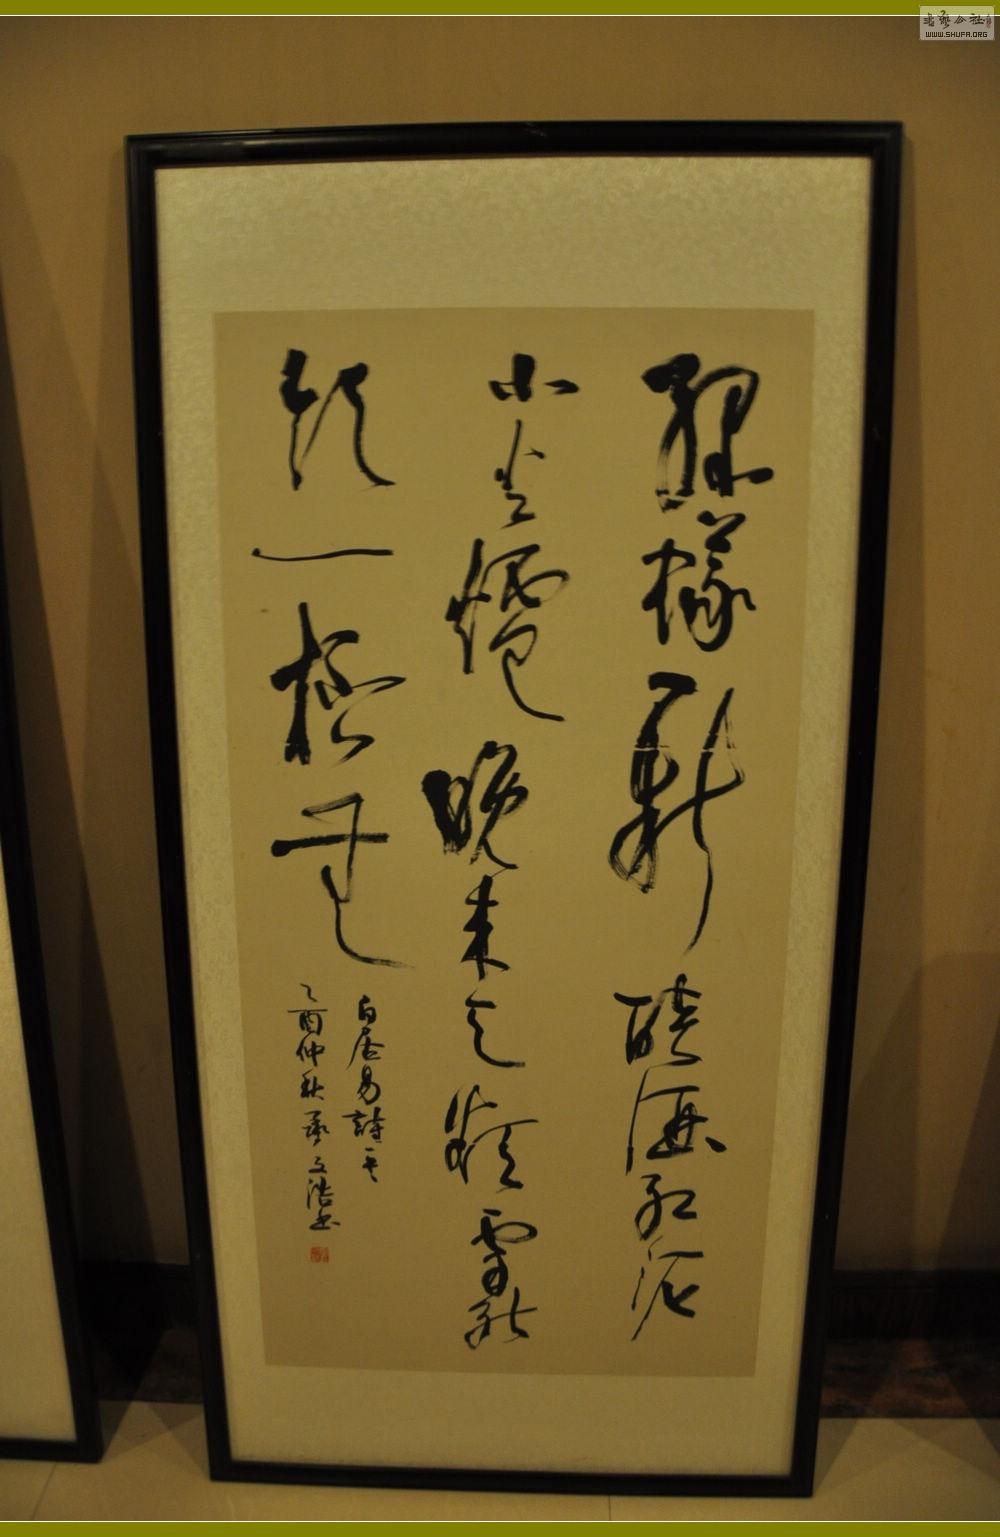 書藝公社
WWW.SHUFA.ORG
綠蟻新醅酒紅泥
小火爐晚来天欲雪能
飲一杯无
白居易詩一首
乙酉仲秋承文浩书